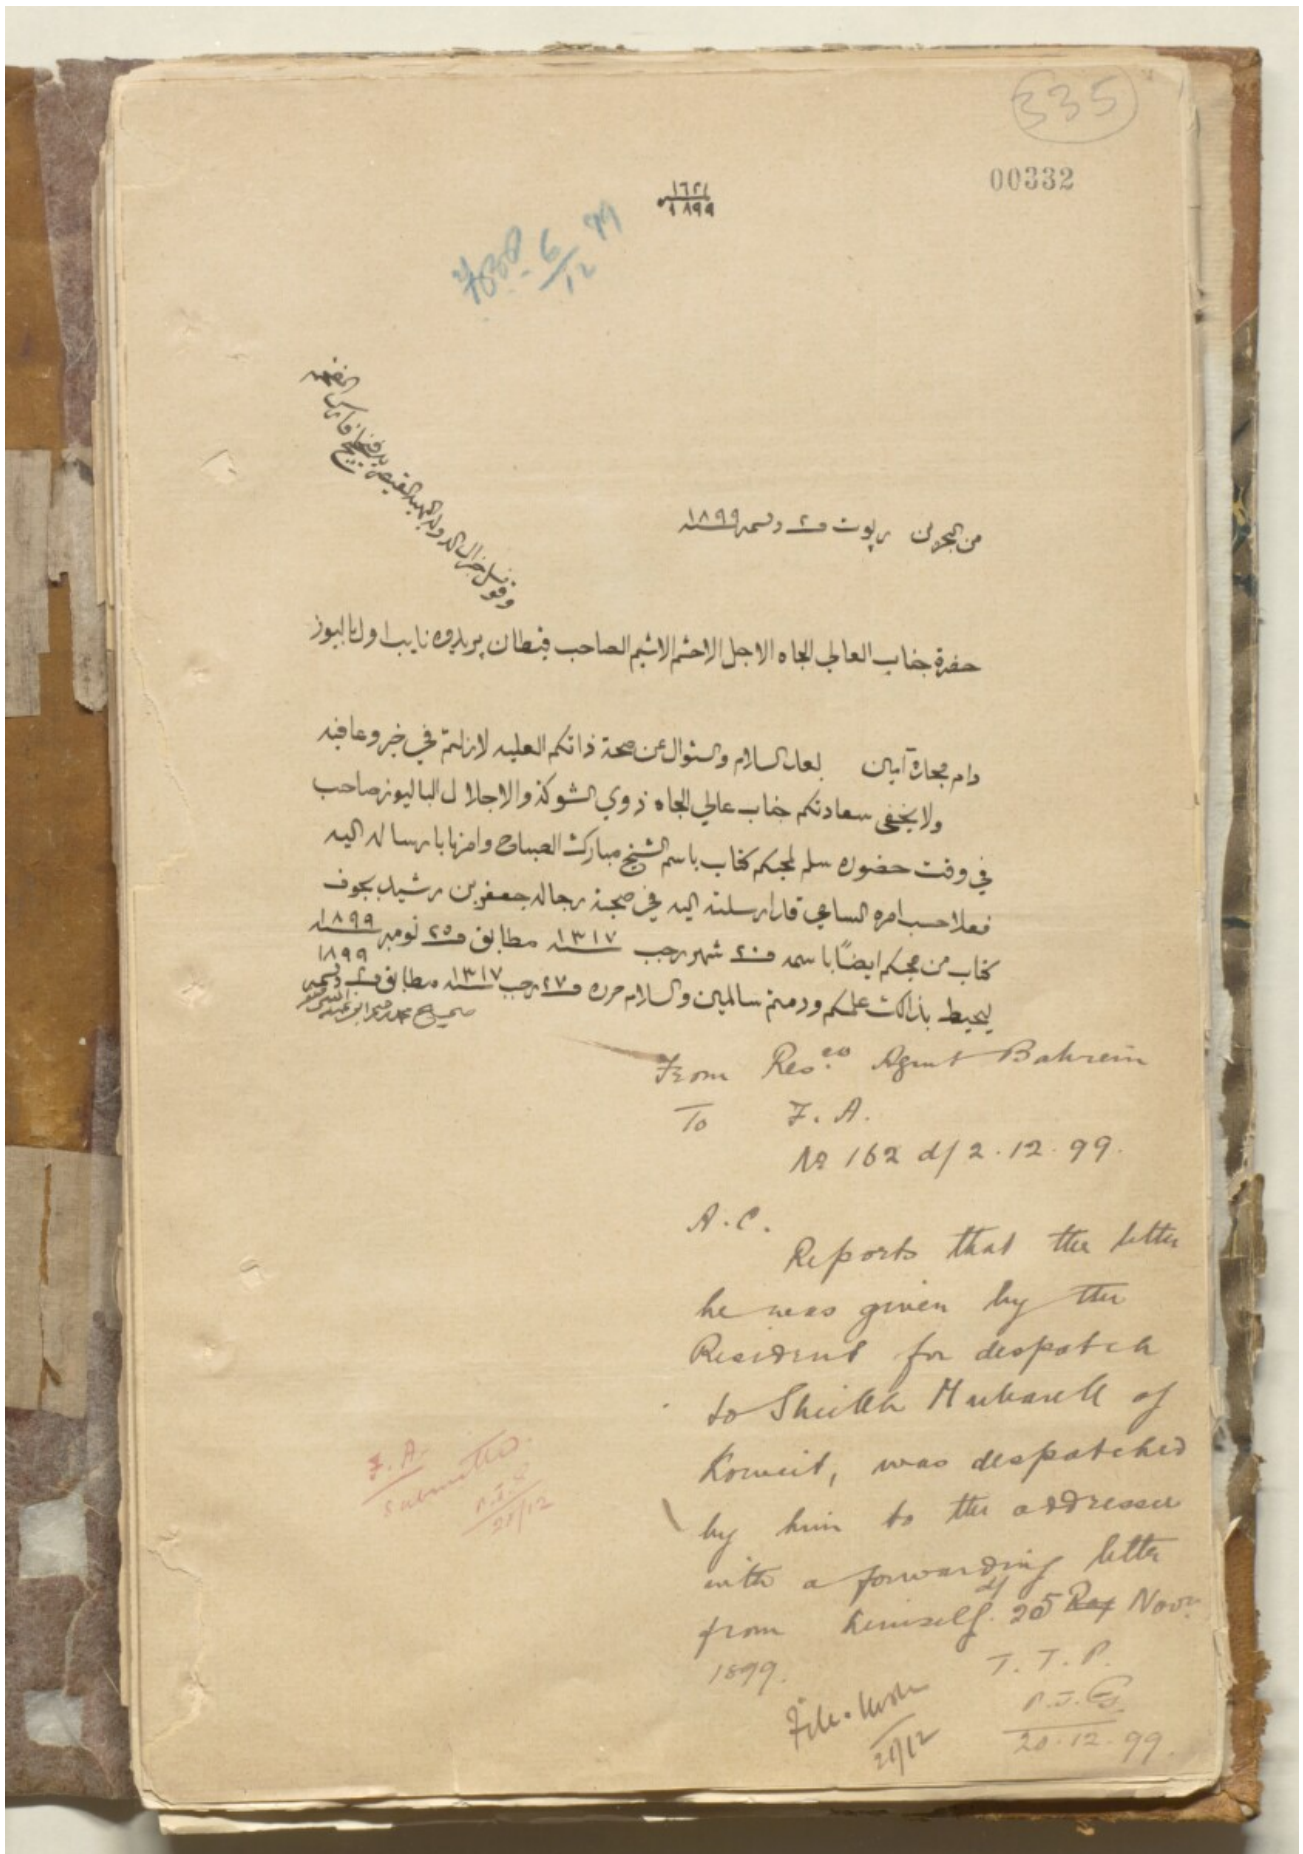 335
00332
١٦٢
١٨٩٩
6/12 99
من البحرين ريوت في ٢ دسمبر ١٨٩٩
حضرة جناب العالي الجاه الاجل الاحشم الافخم الصاحب قبطان پريدوه نايب اول باليوز
وقونسل جنرال الدولة البهية القيصرية في خليج فارس
دام مجده آمين بعد السلام والسئوال عن صحة ذاتكم العليه لازلتم في خير وعافيه
ولا يخفى سعادتكم جناب عالي الجاه ذوي الشوكة والاجلال الباليوز صاحب
في وقت حضوره سلم لمحبكم كتاب باسم الشيخ مبارك الصباح وامرنا بارساله اليه
فعلا حسب امره الساعي قد ارسلته اليه في صحبة رجاله جعفر بن رشيد بجوف
كتاب من محبكم ايضًا باسمه في ٢٠ شهر رجب ١٣١٧ مطابق في ٢٥ نومبر ١٨٩٩
ليحيط بذالك علمكم ودمتم سالمين والسلام حرره في ٢٧ رجب ١٣١٧ مطابق في ٢ دسمبر ١٨٩٩
صحيح محمد رحيم ابن عبد النبي صفر
From Res.cy Agent Bahrein
To F. A.
No 162 d/ 2.12.99.
A.C.
Reports that the letter
he was given by the
Resident for despatch
to Sheikh Mubarek of
Koweit, was despatched
by him to the addressee
with a forwarding letter
from himself d/ 25 Novr
1899.
T. T. P.
20.12.99.
File
21/12
F. A.
submitted
20/12